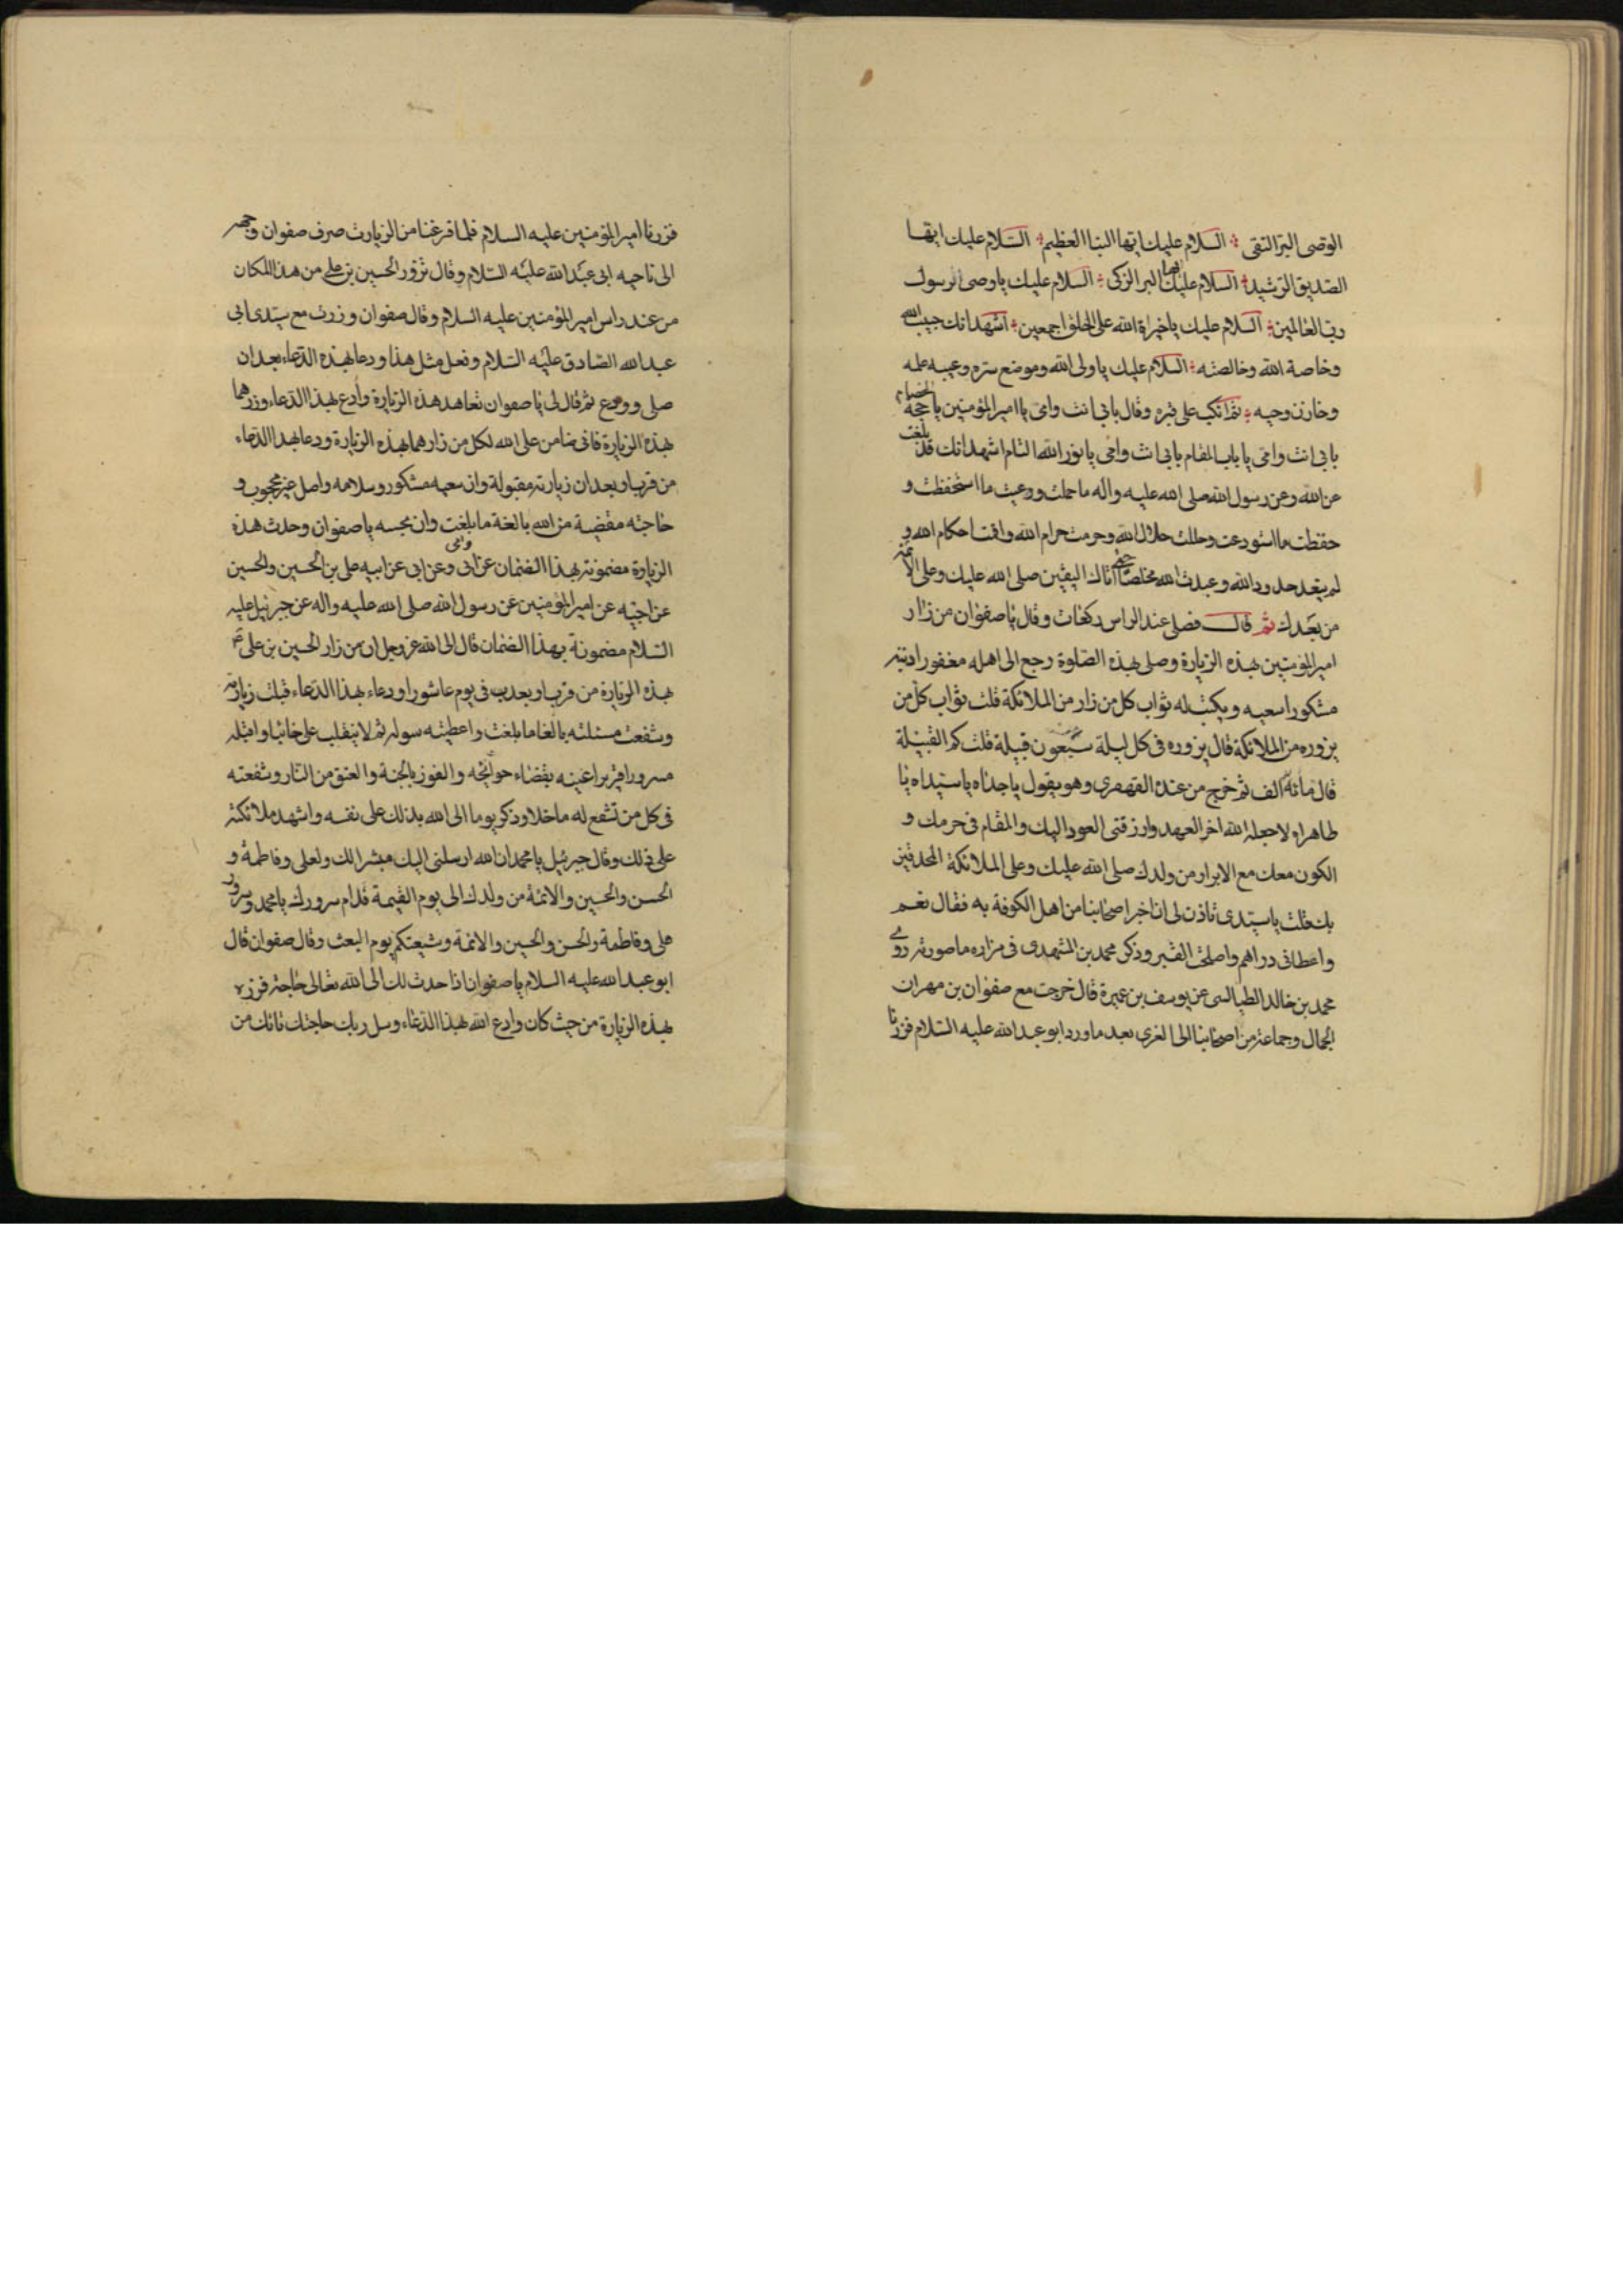 الوصى البر التقى السلام عليك ايها النبا العظيم السلام عليك ايها
الصديق الرشيد السلام عليك ايها البر الزكى السلام عليك يا وصى رسول
رب العالمين السلام عليك يا خيرة الله على الخلق اجمعين اشهد انك حبيب الله
وخاصة الله وخالصته السلام عليك يا ولى الله وموضع سره وعيبه علمه
وخازن وحيه ثم انكب على قبره وقال بابى انت وامى يا امير المؤمنين يا حجة الخصام
بابى انت وامى يا باب المقام بابى انت وامى يا نور الله التام اشهد انك قد بلغت
عن الله وعن رسول الله صلى الله عليه واله ما حملت ورعيت ما استحفظت و
حفظت ما استودعت وحللت حلال الله وحرمت حرام الله واقمت احكام الله و
لم يتعد حدود الله وعبدت الله مخلصا حتى اتاك اليقين صلى الله عليك وعلى الائمة
من بعدك ثم قال فصلى عند الراس ركعات وقال يا صفوان من زار
امير المؤمنين بهذه الزيارة وصلى بهذه الصلوة رجع الى اهله مغفورا ذنبه
مشكورا سعيه ويكتب له ثواب كل من زار من الملائكة قلت ثواب كل من
يزوره من الملائكة قال يزوره فى كل ليلة سبعون قبيلة قلت كم القبيلة
قال مائة الف ثم خرج من عنده القهقرى وهو يقول يا جداه يا سيداه يا
طاهراه لا جعله الله اخر العهد وارزقنى العود اليك والمقام فى حرمك و
الكون معك مع الابرار من ولدك صلى الله عليك وعلى الملائكة المحدقين
بك فقلت يا سيدى تاذن لى ان اخبر اصحابنا من اهل الكوفة به فقال نعم
واعطانى دراهم واصلحت القبر وذكر محمد بن المشهدى فى مزاره ما صورته روى
محمد بن خالد الطيالسى عن يوسف بن عميرة قال خرجت مع صفوان بن مهران
الجمال وجماعة من اصحابنا الى الغرى بعد ما ورد ابو عبد الله عليه السلام فزرنا
فزرنا امير المؤمنين عليه السلام فلما فرغنا من الزيارت صرف صفوان وجهه
الى ناحيه ابى عبد الله عليه السلام وقال نزور الحسين بن على من هذا المكان
من عند راس امير المؤمنين عليه السلام وقال صفوان وزرت مع سيدى ابى
عبد الله الصادق عليه السلام وفعل مثل هذا ودعا بهذه الدعاء بعد ان
صلى وودع ثم قال لى يا صفوان تعاهد هذه الزيارة وادع بهذا الدعاء وزرهما
بهذه الزيارة فانى ضامن على الله لكل من زارهما بهذه الزيارة ودعا بهذا الدعاء
من قرب او بعد ان زيارته مقبولة وان سعيه مشكور وسلامه واصل غير محجوب و
حاجته مقضية من الله بالغة ما بلغت وان يجيبه يا صفوان وحدث هذه
الزيارة مضمونة بهذا الضمان عن ابى وابى عن ابى عن ابيه على بن الحسين والحسين
عن اخيه عن امير المؤمنين عن رسول الله صلى الله عليه واله عن جبرئيل عليه
السلام مضمونة بهذا الضمان قال الى الله عز وجل ان من زار الحسين بن على ع
بهذه الزيارة من قرب او بعد فى يوم عاشورا ودعاء بهذا الدعاء قبلت زيارته
وشفعت مسئلته بالغا ما بلغت واعطيته سوله ثم لا ينقلب على خائبا واقبله
مسرورا قريرا عينه بقضاء حوائجه والفوز بالجنة والعتق من النار وشفعته
فى كل من تشفع له ما خلا وذكر يوما الى الله بذلك على نفسه واشهد ملائكته
على ذلك وقال جبرئيل يا محمد ان الله ارسلنى اليك مبشرا لك ولعلى وفاطمة و
الحسن والحسين والائمة من ولدك الى يوم القيمة فدام سرورك يا محمد وسرور
على وفاطمة والحسن والحسين والائمة وشيعتكم يوم البعث وقال صفوان قال
ابو عبد الله عليه السلام يا صفوان اذا حدث لك الى الله تعالى حاجة فزره
بهذه الزيارة من حيث كان وادع الله بهذا الدعاء وسل ربك حاجتك تاتك من